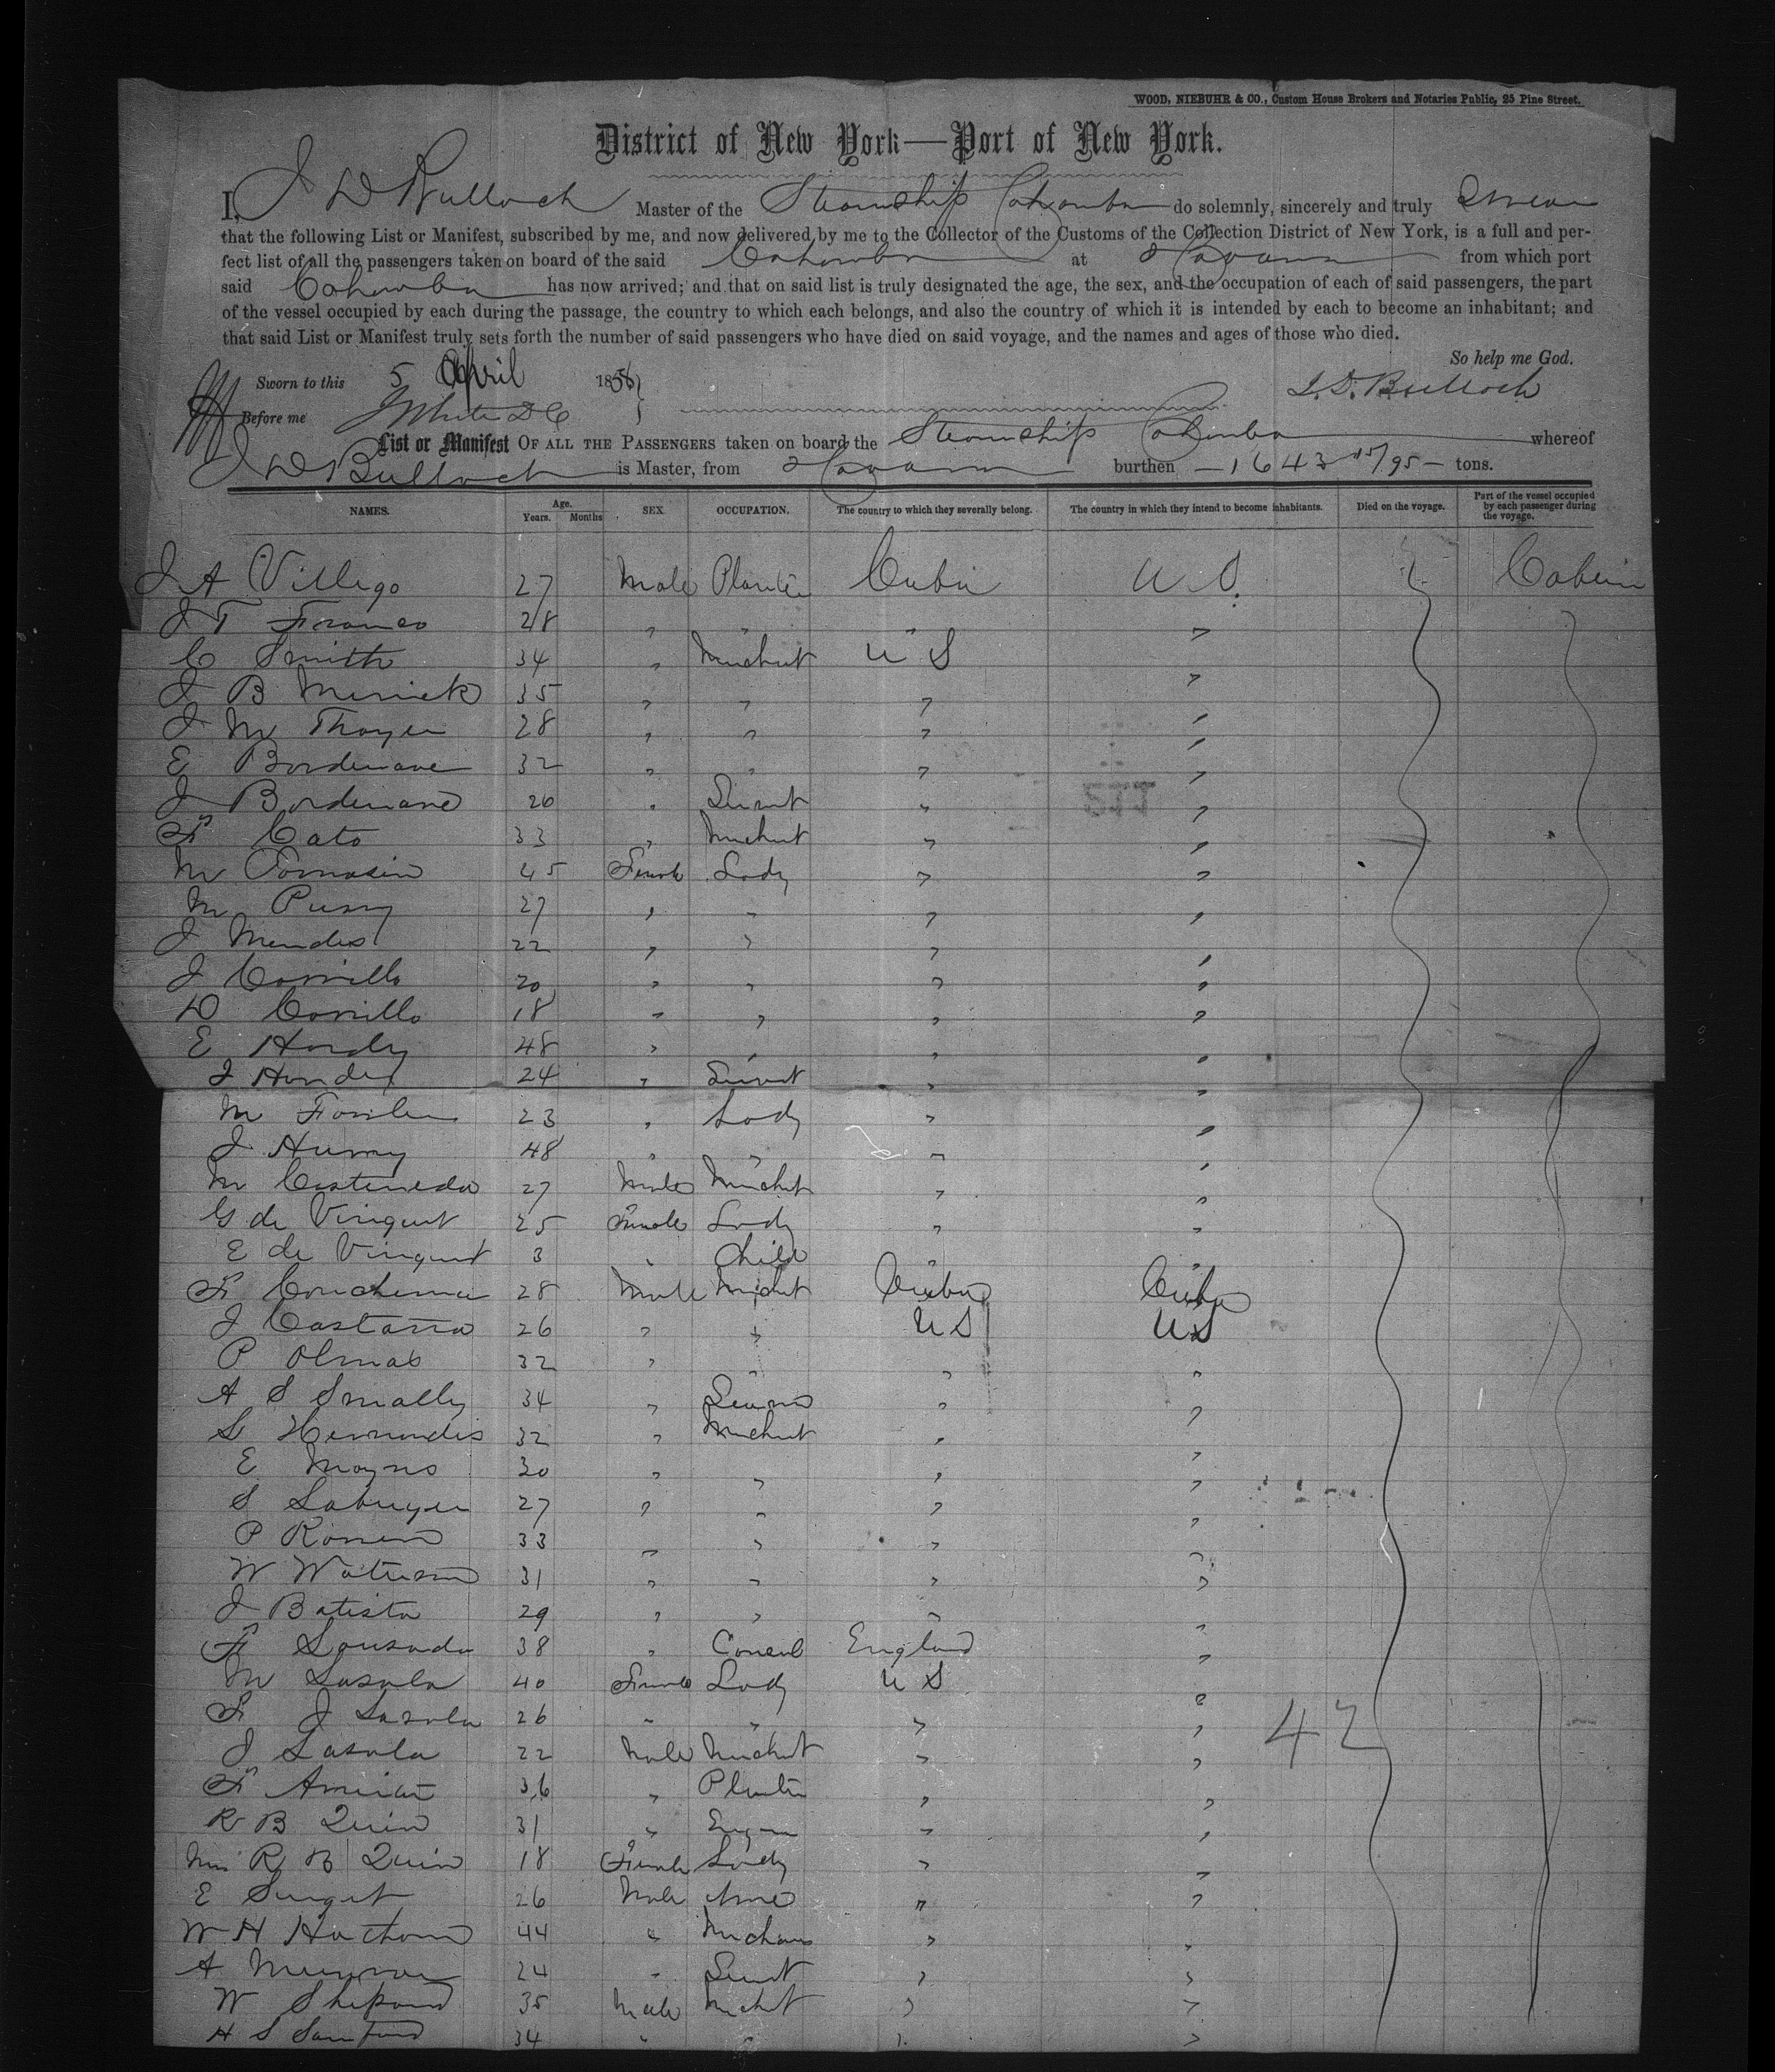 WOOD, NIEBUHR & CO., Custom House Brokers and Notaries Public, 25 Pine Street.
District of New York—Port of New York.
I, J D Bulloch Master of the Steamship Cahawba do solemnly, sincerely and truly Swear
that the following List or Manifest, subscribed by me, and now delivered by me to the Collector of the Customs of the Collection District of New York, is a full and per-
fect list of all the passengers taken on board of the said Cahawba at Havana from which port
said Cahawba has now arrived; and that on said list is truly designated the age, the sex, and the occupation of each of said passengers, the part
of the vessel occupied by each during the passage, the country to which each belongs, and also the country of which it is intended by each to become an inhabitant; and
that said List or Manifest truly sets forth the number of said passengers who have died on said voyage, and the names and ages of those who died.
So help me God.
Sworn to this 5 April 1856
J. D. Bulloch
Before me J White D C
List or Manifest OF ALL THE PASSENGERS taken on board the Steamship Cahawba whereof
J D Bulloch is Master, from Havana burthen — 1643 15/95 — tons.
NAMES. Age. Years. Months SEX. OCCUPATION. The country to which they severally belong. The country in which they intend to become inhabitants. Died on the voyage. Part of the vessel occupied by each passenger during the voyage.
J A Villego 27 Male Planter Cuba U S. Cabin
J T Franco 28 " " " "
C Smith 34 " Merchant U S
J B Merrick 35 " " " "
J M Thayer 28 " " " "
E Bordenave 32 " " " "
J Bordenave 20 " Servant " "
F Cato 33 " Merchant " "
M Tomasin 45 Female Lady " "
M 27 " " " "
J Mendes 22 " " " "
J Carrillo 20 " " " "
D Carrillo 18 " " " "
E Hardy 48 " " " "
J 24 " Servant " "
M 23 " Lady " "
J 48 " " " "
M Casteneda 27 Male Merchant " "
G de 25 Female Lady " "
E de 3 " Child " "
F 28 Male Merchant Cuba Cuba
J Castana 26 " " U S U S
P Olmas 32 " " " "
A S Smally 34 " "
S Hernandis 32 " Merchant " "
E Mayns 30 " " " "
S 27 " " " "
P 33 " " " "
W Waterson 31 " " " "
J Batista 29 " " " "
F Lousada 38 " Consul England "
M Lasala 40 Female Lady U S "
F J Lasala 26 " " " "
J Lasala 22 Male Merchant " "
42
F 36 " Planter " "
R B Quin 31 " " "
Mrs R B Quin 18 Female Lady " "
E 26 Male " "
W H 44 " " "
A 24 " Servant " "
W Shepard 35 Male Merchant " "
H S Sanford 34 " " " "